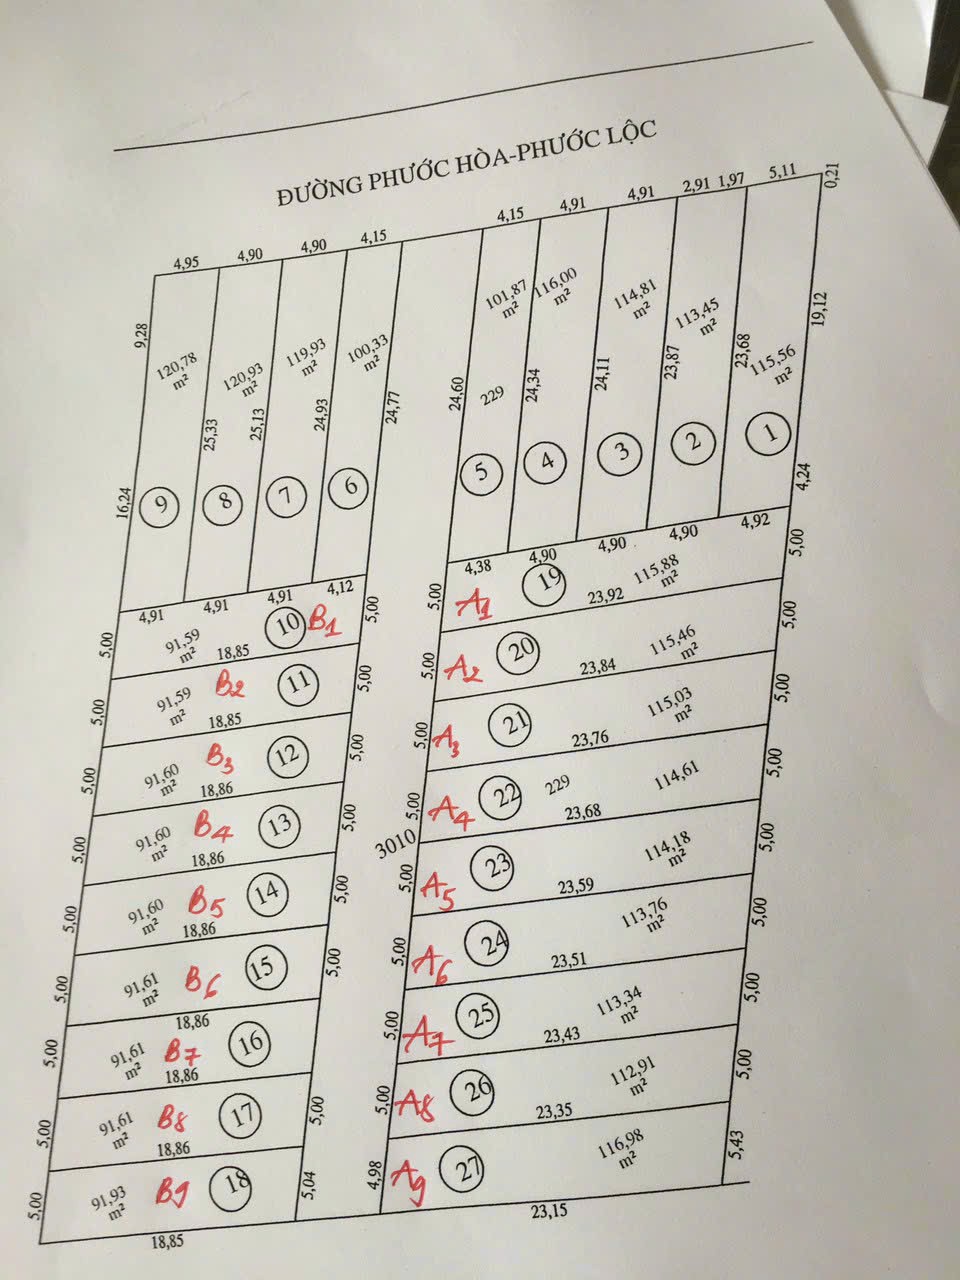 ĐƯỜNG PHƯỚC HÒA-PHƯỚC LỘC
4,95 4,90 4,90 4,15 4,15 4,91 4,91 2,91 1,97 5,11 0,21
9,28 120,78 m² 120,93 m² 119,93 m² 100,33 m² 101,87 m² 116,00 m² 114,81 m² 113,45 m² 115,56 m² 19,12
16,24 25,33 25,13 24,93 24,77 24,60 229 24,34 24,11 23,87 23,68 4,24
9 8 7 6 5 4 3 2 1
4,91 4,91 4,91 4,12 4,38 4,90 4,90 4,90 4,92
5,00 91,59 m² 18,85 10 B1 5,00
5,00 91,59 m² B2 18,85 11 5,00
5,00 91,60 m² B3 18,86 12 5,00
5,00 91,60 m² B4 18,86 13 5,00
5,00 91,60 m² B5 18,86 14 5,00
5,00 91,61 m² B6 18,86 15 5,00
5,00 91,61 m² B7 18,86 16
5,00 91,61 m² B8 18,86 17 5,00
5,00 91,93 m² B9 18 5,04
18,85
3010
5,00 A1 19 23,92 115,88 m² 5,00
5,00 A2 20 23,84 115,46 m² 5,00
5,00 A3 21 23,76 115,03 m² 5,00
5,00 A4 22 229 23,68 114,61 5,00
5,00 A5 23 23,59 114,18 m² 5,00
5,00 A6 24 23,51 113,76 m² 5,00
5,00 A7 25 23,43 113,34 m² 5,00
5,00 A8 26 23,35 112,91 m² 5,00
4,98 A9 27 116,98 m² 5,43
23,15